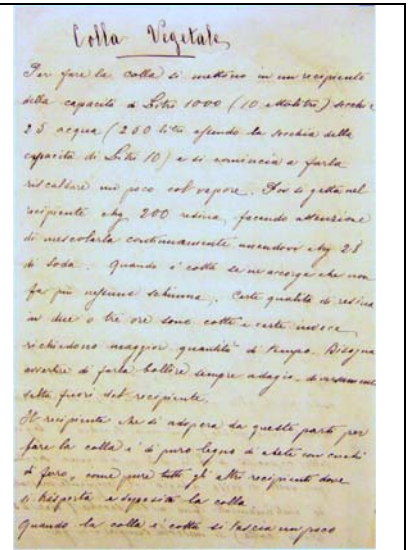 Colla Vegetale
Per fare la colla si mettono in un recipiente
della capacità di Litri 1000 (10 ettolitri) secchie
25 acqua (250 litri essendo la secchia della
capacità di Litri 10) e si comincia a farla
riscaldare un poco col vapore. Poi si getta nel
recipiente chg 200 resina, facendo attenzione
di mescolarla continuamente unendovi chg 28
di soda. Quando è cotta se ne accorge che non
fa più nessuna schiuma. Certe qualità di resina
in due o tre ore sono cotte e certe invece
richiedono maggior quantità di tempo. Bisogna
avvertire di farla bollire sempre adagio,
salta fuori del recipiente.
Il recipiente che si adopera da queste parti per
fare la colla è di puro legno di abete con cerchi
di ferro, come pure tutti gli altri recipienti dove
si deposita la colla.
Quando la colla è cotta si lascia un poco